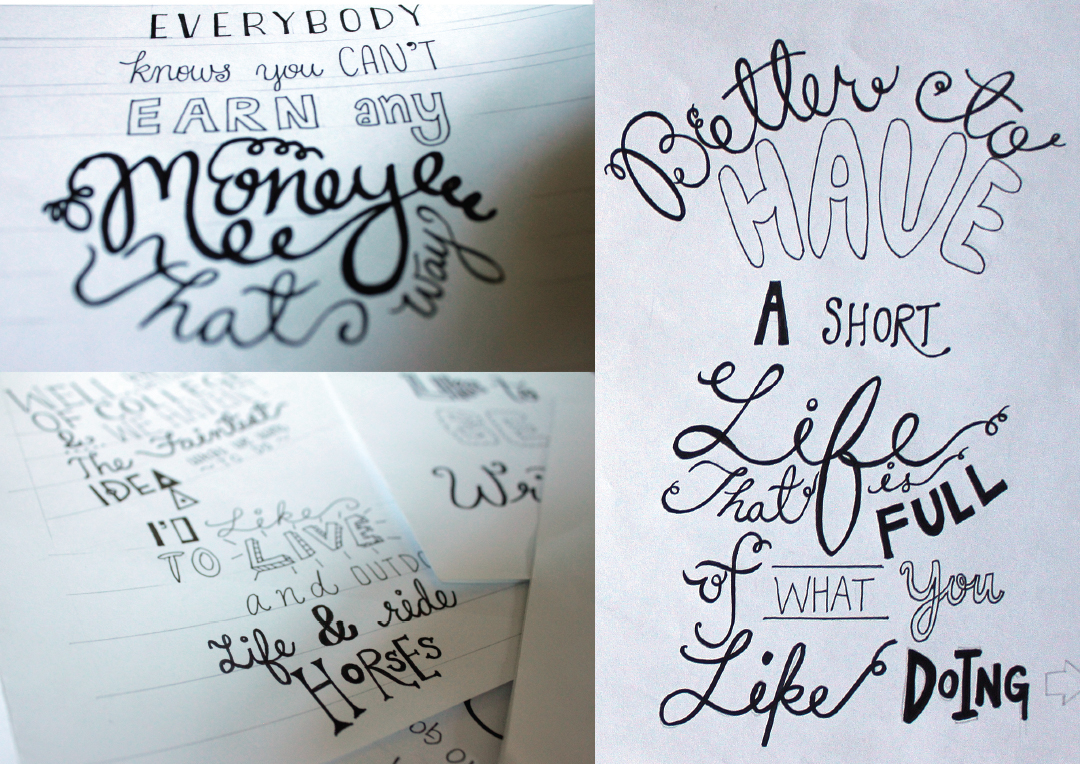 EVERYBODY
knows you CAN'T
EARN any
Money
That way
OF COLLEGE
&
The Faintest
IDEA
I'D Like
TO LIVE
and OUTDO
Life & ride
HORSES
BE
Wri
Better to
HAVE
A SHORT
Life
That is FULL
of WHAT You
Like DOING